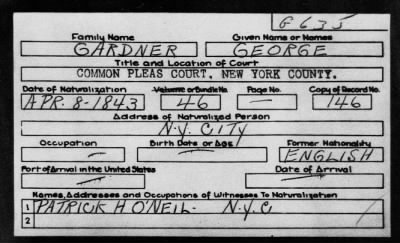 G 635
Family Name Given Name or Names
GARDNER GEORGE
Title and Location of Court
COMMON PLEAS COURT, NEW YORK COUNTY.
Date of Naturalization Volume or Bundle No. Page No. Copy of Record No.
APR. 8-1843 46 — 146
Address of Naturalized Person
N.Y. CITY
Occupation Birth Date or Age Former Nationality
— — ENGLISH
Port of Arrival in the United States Date of Arrival
— —
Names, Addresses and Occupations of Witnesses To Naturalization
1 PATRICK H O'NEIL - N.Y.C
2